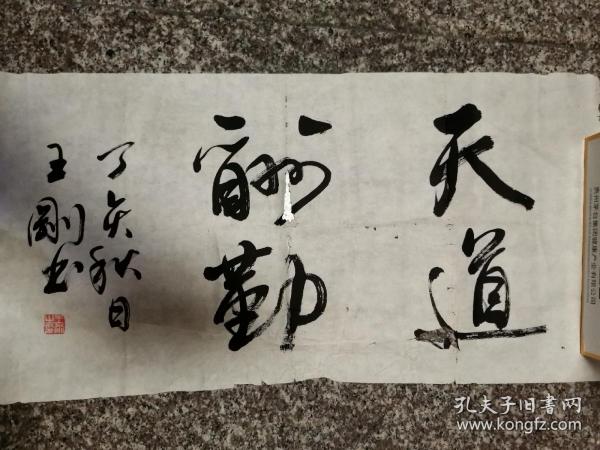 天道
酬勤
丁亥秋日
王刚书
孔夫子旧書网
www.kongfz.com